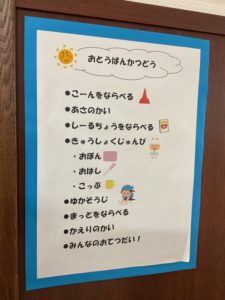 おとうばんかつどう
●こーんをならべる
●あさのかい
●しーるちょうをならべる
●きゅうしょくじゅんび
・おぼん
・おはし
・こっぷ
●ゆかそうじ
●まっとをならべる
●かえりのかい
●みんなのおてつだい！